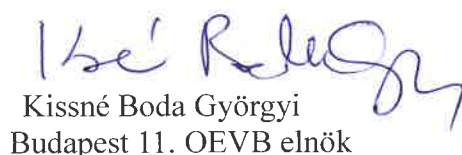 Kissné Boda Györgyi
Budapest 11. OEVB elnök